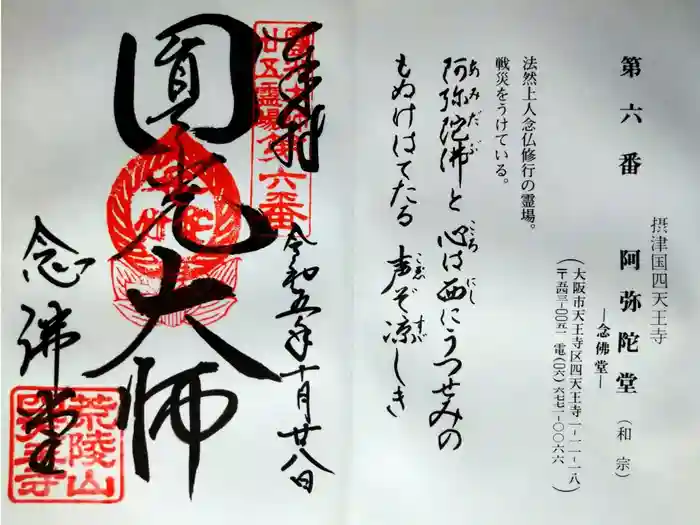 第六番 阿弥陀堂 (和宗)
摂津国四天王寺
―念佛堂―
(大阪市天王寺区四天王寺一-一一-一八
〒五四三-〇〇五一 電(〇六)六七七一-〇〇六六)
法然上人念仏修行の霊場。
戦災をうけている。
阿弥陀佛と 心は西にうつせみの
あみだぶ こころ にし
もぬけはてたる 声ぞ凉しき
こゑ すゞ
奉拝
廿五霊場第六番
令和五年十月廿八日
圓光大師
念佛堂
荒陵山